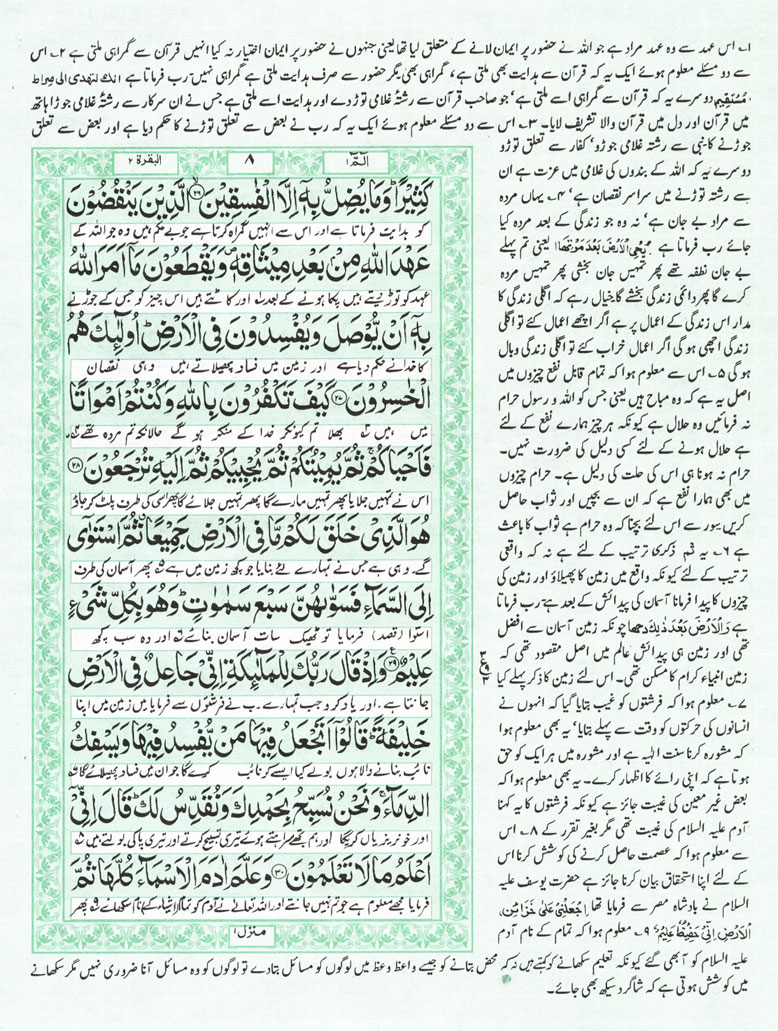 ۱۔ اس عہد سے وہ عہد مراد ہے جو اللہ نے حضور پر ایمان لانے کے متعلق لیا تھا یعنی جنہوں نے حضور پر ایمان اختیار نہ کیا انہیں قرآن سے گمراہی ملتی ہے ۲۔ اس
سے دو مسئلے معلوم ہوئے ایک یہ کہ قرآن سے ہدایت بھی ملتی ہے، گمراہی بھی مگر حضور سے صرف ہدایت ملتی ہے گمراہی نہیں۔ رب فرماتا ہے انک لتہدی الی صراط
مستقیم دوسرے یہ کہ قرآن سے گمراہی اسے ملتی ہے، جو صاحب قرآن سے رشتۂ غلامی توڑ دے اور ہدایت اسے ملتی ہے جس نے ان سرکار سے رشتۂ غلامی جوڑا ہاتھ
میں قرآن اور دل میں قرآن والا تشریف لایا۔ ۳۔ اس سے دو مسئلے معلوم ہوئے ایک یہ کہ رب نے بعض سے تعلق توڑنے کا حکم دیا ہے اور بعض سے تعلق
جوڑنے کا۔ نبی سے رشتہ غلامی جوڑو، کفار سے تعلق توڑو
دوسرے یہ کہ اللہ کے بندوں کی غلامی میں عزت ہے ان
سے رشتہ توڑنے میں سراسر نقصان ہے، ۴۔ یہاں مردہ
سے مراد بے جان ہے، نہ وہ جو زندگی کے بعد مردہ کیا
جائے رب فرماتا ہے یحی الارض بعد موتھا یعنی تم پہلے
بے جان نطفہ تھے پھر تمہیں جان بخشی پھر تمہیں مردہ
کرے گا پھر دائمی زندگی بخشے گا۔ خیال رہے کہ اگلی زندگی کا
مدار اس زندگی کے اعمال پر ہے اگر اچھے اعمال کئے تو اگلی
زندگی اچھی ہو گی اگر اعمال خراب کئے تو اگلی زندگی وبال
ہو گی ۵۔ اس سے معلوم ہوا کہ تمام قابل نفع چیزوں میں
اصل یہ ہے کہ وہ مباح ہیں یعنی جس کو اللہ و رسول حرام
نہ فرمائیں وہ حلال ہے کیونکہ ہر چیز ہمارے نفع کے لئے
ہے حلال ہونے کے لئے کسی دلیل کی ضرورت نہیں۔
حرام نہ ہونا ہی اس کی حلت کی دلیل ہے۔ حرام چیزوں
میں بھی ہمارا نفع ہے کہ ان سے بچیں اور ثواب حاصل
کریں سور سے اس لئے بچنا کہ وہ حرام ہے ثواب کا باعث
ہے ۶۔ یہ ثم ذکری ترتیب کے لئے ہے نہ کہ واقعی
ترتیب کے لئے کیونکہ واقع میں زمین کا پھیلاؤ اور زمین کی
چیزوں کا پیدا فرمانا آسمان کی پیدائش کے بعد ہے۔ رب فرماتا
ہے والارض بعد ذلک دحھا چونکہ زمین آسمان سے افضل
تھی اور زمین ہی پیدائش عالم میں اصل مقصود تھی کہ
زمین انبیاء کرام کا مسکن تھی۔ اس لئے زمین کا ذکر پہلے کیا
۷۔ معلوم ہوا کہ فرشتوں کو غیب بتایا گیا کہ انہوں نے
انسانوں کی حرکتوں کو وقت سے پہلے بتایا، یہ بھی معلوم ہوا
کہ مشورہ کرنا سنت الٰہیہ ہے اور مشورہ میں ہر ایک کو حق
ہوتا ہے کہ اپنی رائے کا اظہار کرے۔ یہ بھی معلوم ہوا کہ
بعض غیر معین کی غیبت جائز ہے کیونکہ فرشتوں کا یہ کہنا
آدم علیہ السلام کی غیبت تھی مگر بغیر تقرر کے ۸۔ اس
سے معلوم ہوا کہ عصمت حاصل کرنے کی کوشش کرنا اس
کے لئے اپنا استحقاق بیان کرنا جائز ہے حضرت یوسف علیہ
السلام نے بادشاہ مصر سے فرمایا تھا اجعلنی علی خزائن
الارض انی حفیظ علیم ۹۔ معلوم ہوا کہ تمام کے نام آدم
علیہ السلام کو آ بھی گئے کیونکہ تعلیم سکھانے کو کہتے ہیں نہ کہ محض بتانے کو جیسے واعظ وعظ میں لوگوں کو مسائل بتا دے تو لوگوں کو وہ مسائل آنا ضروری نہیں مگر سکھانے
میں کوشش ہوتی ہے کہ شاگرد سیکھ بھی جائے۔
البقرة ۲
۸
الٓمّٓ ۱
كَثِيْرًا وَمَا يُضِلُّ بِهٖٓ اِلَّا الْفٰسِقِيْنَ ۲۶ الَّذِيْنَ يَنْقُضُوْنَ
کو ہدایت فرماتا ہے اور اس سے انہیں گمراہ کرتا ہے جو بے حکم ہیں وہ جو اللہ کے
عَهْدَ اللّٰهِ مِنْۢ بَعْدِ مِيْثَاقِهٖ وَيَقْطَعُوْنَ مَآ اَمَرَ اللّٰهُ
عہد کو توڑ دیتے ہیں پکا ہونے کے بعد اور کاٹتے ہیں اس چیز کو جس کے جوڑنے
بِهٖٓ اَنْ يُّوْصَلَ وَيُفْسِدُوْنَ فِي الْاَرْضِ اُولٰٓئِكَ هُمُ
کا خدا نے حکم دیا ہے اور زمین میں فساد پھیلاتے ہیں وہی نقصان
الْخٰسِرُوْنَ ۲۷ كَيْفَ تَكْفُرُوْنَ بِاللّٰهِ وَكُنْتُمْ اَمْوَاتًا
میں ہیں بھلا تم کیونکر خدا کے منکر ہو گے حالانکہ تم مردہ تھے
فَاَحْيَاكُمْ ثُمَّ يُمِيْتُكُمْ ثُمَّ يُحْيِيْكُمْ ثُمَّ اِلَيْهِ تُرْجَعُوْنَ ۲۸
اس نے تمہیں جلایا پھر تمہیں مارے گا پھر تمہیں جلائے گا پھر اسی کی طرف پلٹ کر جاؤ
هُوَ الَّذِيْ خَلَقَ لَكُمْ مَّا فِي الْاَرْضِ جَمِيْعًا ثُمَّ اسْتَوٰٓى
گے۔ وہی ہے جس نے تمہارے لئے بنایا جو کچھ زمین میں ہے پھر آسمان کی طرف
اِلَى السَّمَآءِ فَسَوّٰىهُنَّ سَبْعَ سَمٰوٰتٍ وَهُوَ بِكُلِّ شَيْءٍ
استوا (قصد) فرمایا تو ٹھیک سات آسمان بنائے اور وہ سب کچھ
عَلِيْمٌ ۲۹ وَاِذْ قَالَ رَبُّكَ لِلْمَلٰٓئِكَةِ اِنِّيْ جَاعِلٌ فِي الْاَرْضِ
جانتا ہے۔ اور یاد کرو جب تمہارے رب نے فرشتوں سے فرمایا میں زمین میں اپنا
خَلِيْفَةً قَالُوْٓا اَتَجْعَلُ فِيْهَا مَنْ يُّفْسِدُ فِيْهَا وَيَسْفِكُ
نائب بنانے والا ہوں بولے کیا ایسے کو نائب کرے گا جو ان میں فساد پھیلائے گا
الدِّمَآءَ وَنَحْنُ نُسَبِّحُ بِحَمْدِكَ وَنُقَدِّسُ لَكَ قَالَ اِنِّيْٓ
اور خونریزیاں کرے گا اور ہم تجھے سراہتے ہوئے تیری تسبیح کرتے اور تیری پاکی بولتے ہیں
اَعْلَمُ مَا لَا تَعْلَمُوْنَ ۳۰ وَعَلَّمَ اٰدَمَ الْاَسْمَآءَ كُلَّهَا ثُمَّ
فرمایا مجھے معلوم ہے جو تم نہیں جانتے اور اللہ تعالیٰ نے آدم کو تمام اشیاء کے نام سکھائے پھر
منزل ۱